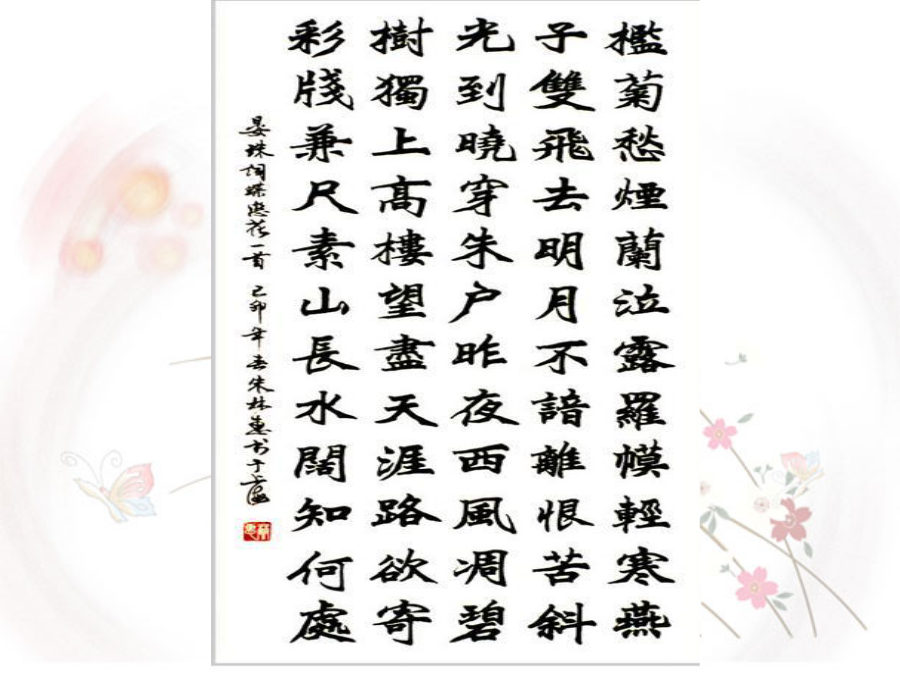 檻菊愁煙蘭泣露羅幙輕寒燕
子雙飛去明月不諳離恨苦斜
光到曉穿朱户昨夜西風凋碧
樹獨上高樓望盡天涯路欲寄
彩牋兼尺素山長水闊知何處
晏珠詞蝶戀花一首 己卯年春朱林惠书于上海